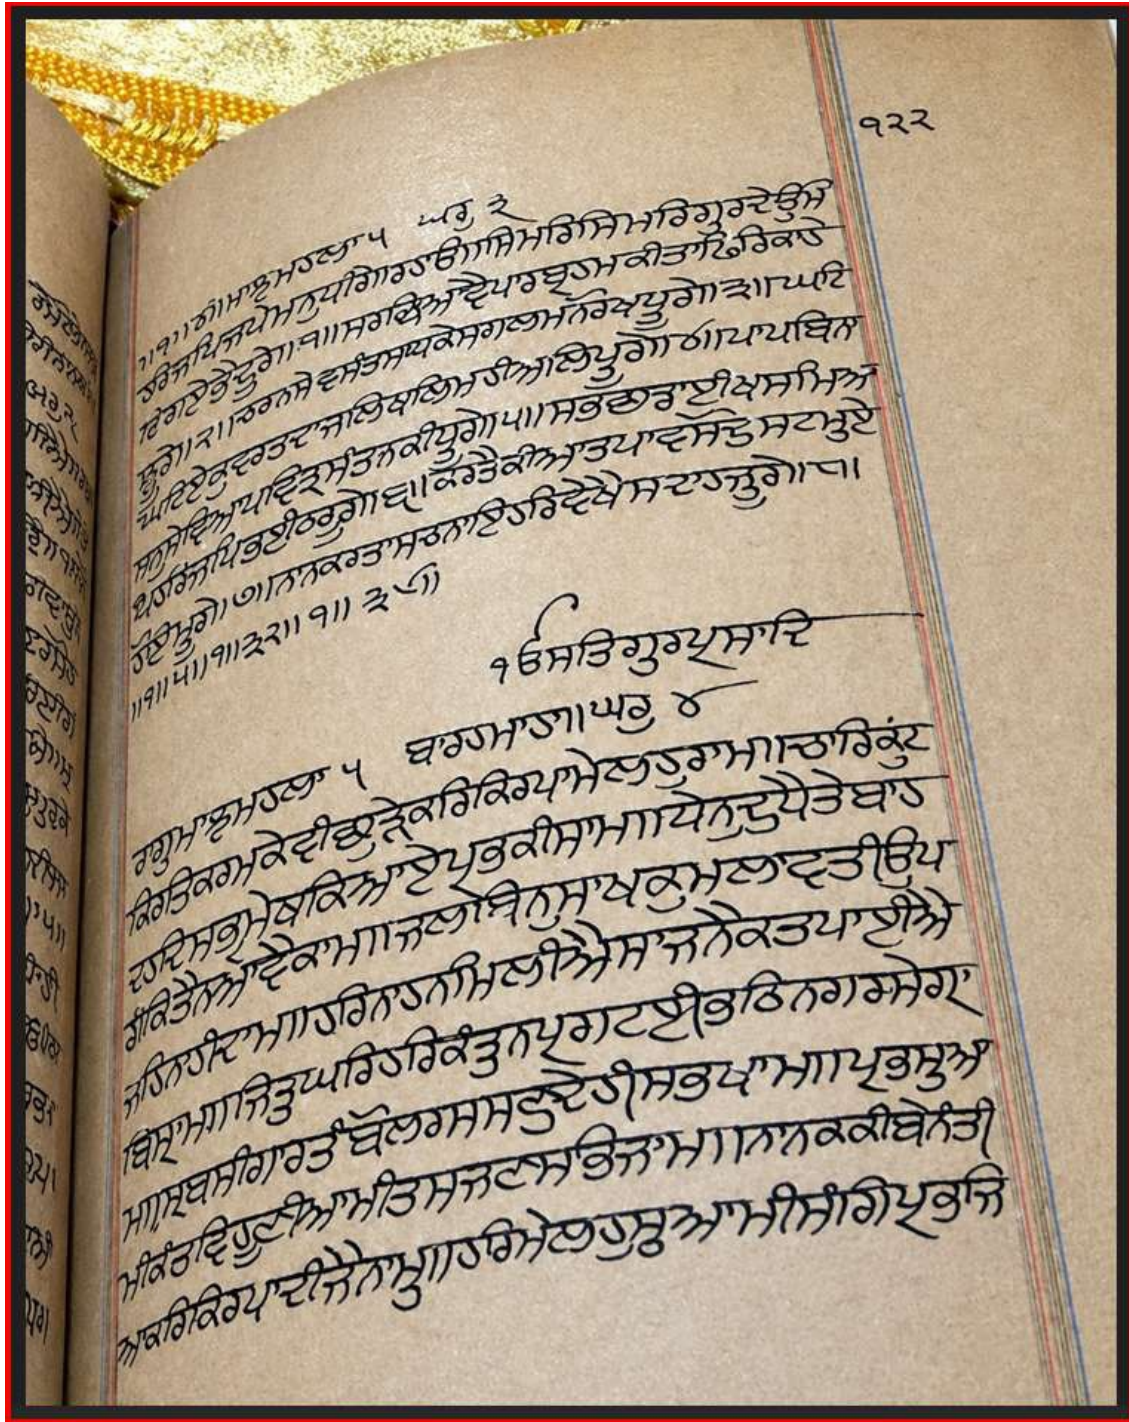 ੧੨੨
॥੧॥੩॥ਮਾਝਮਹਲਾ੫ ਘਰੁ ੩
ਹਰਿਜਪਿਜਪੇਮਨੁਧੀਰੇ॥ਰਹਾਉ॥ਸਿਮਰਿਸਿਮਰਿਗੁਰਦੇਉਮਿ
ਟਿਗਏਭੈਦੂਰੇ॥੧॥ਸਰਨਿਆਵੈਪਾਰਬ੍ਰਹਮਕੀਤਾਫਿਰਿਕਾਹੇ
ਝੂਰੇ॥੨॥ਚਰਨਸੇਵਸੰਤਸਾਧਕੇਸਗਲਮਨੋਰਥਪੂਰੇ॥੩॥ਘਟਿ
ਘਟਿਏਕੁਵਰਤਦਾਜਲਿਥਲਿਮਹੀਆਲਿਪੂਰੇ॥੪॥ਪਾਪਬਿਨਾ
ਸਨੁਸੇਵਿਆਪਵਿਤ੍ਰਸੰਤਨਕੀਧੂਰੇ॥੫॥ਸਭਛਡਾਈਖਸਮਿਆ
ਪਹਰਿਜਪਿਭਈਠਰੂਰੇ॥੬॥ਕਰਤੈਕੀਆਤਪਾਵਸੋਦੁਸਟਮੁਏ
ਹੋਇਮੂਰੇ॥੭॥ਨਾਨਕਰਤਾਸਚਨਾਇਹਰਿਵੇਖੈਸਦਾਹਜੂਰੇ॥੮॥
॥੧॥੫॥੧॥੩੨॥੧॥੩੯॥
ੴਸਤਿਗੁਰਪ੍ਰਸਾਦਿ
ਰਾਗੁਮਾਝਮਹਲਾ ੫ ਬਾਰਹਮਾਹਾ॥ਘਰੁ ੪
ਕਿਰਤਿਕਰਮਕੇਵੀਛੁੜੇਕਰਿਕਿਰਪਾਮੇਲਹੁਰਾਮ॥ਚਾਰਿਕੁੰਟ
ਦਹਦਿਸਭ੍ਰਮੇਥਕਿਆਏਪ੍ਰਭਕੀਸਾਮ॥ਧੇਨੁਦੁਧੈਤੇਬਾਹ
ਰੀਕਿਤੈਨਆਵੈਕਾਮ॥ਜਲਬਿਨੁਸਾਖਕੁਮਲਾਵਤੀਉਪ
ਜਹਿਨਾਹੀਦਾਮ॥ਹਰਿਨਾਹਨਮਿਲੀਐਸਾਜਨੈਕਤਪਾਈਐ
ਬਿਸ੍ਰਾਮ॥ਜਿਤੁਘਰਿਹਰਿਕੰਤੁਨਪ੍ਰਗਟਈਭਠਿਨਗਰਸੇਗ੍ਰਾ
ਮ॥ਸ੍ਰਬਸੀਗਾਰਤੰਬੋਲਰਸਸਣੁਦੇਹੀਸਭਖਾਮ॥ਪ੍ਰਭਸੁਆ
ਮੀਕੰਤਵਿਹੂਣੀਆਮੀਤਸਜਣਸਭਿਜਾਮ॥ਨਾਨਕਕੀਬੇਨੰਤੀ
ਆਕਰਿਕਿਰਪਾਦੀਜੈਨਾਮੁ॥ਹਰਿਮੇਲਹੁਸੁਆਮੀਸੰਗਿਪ੍ਰਭਜਿ